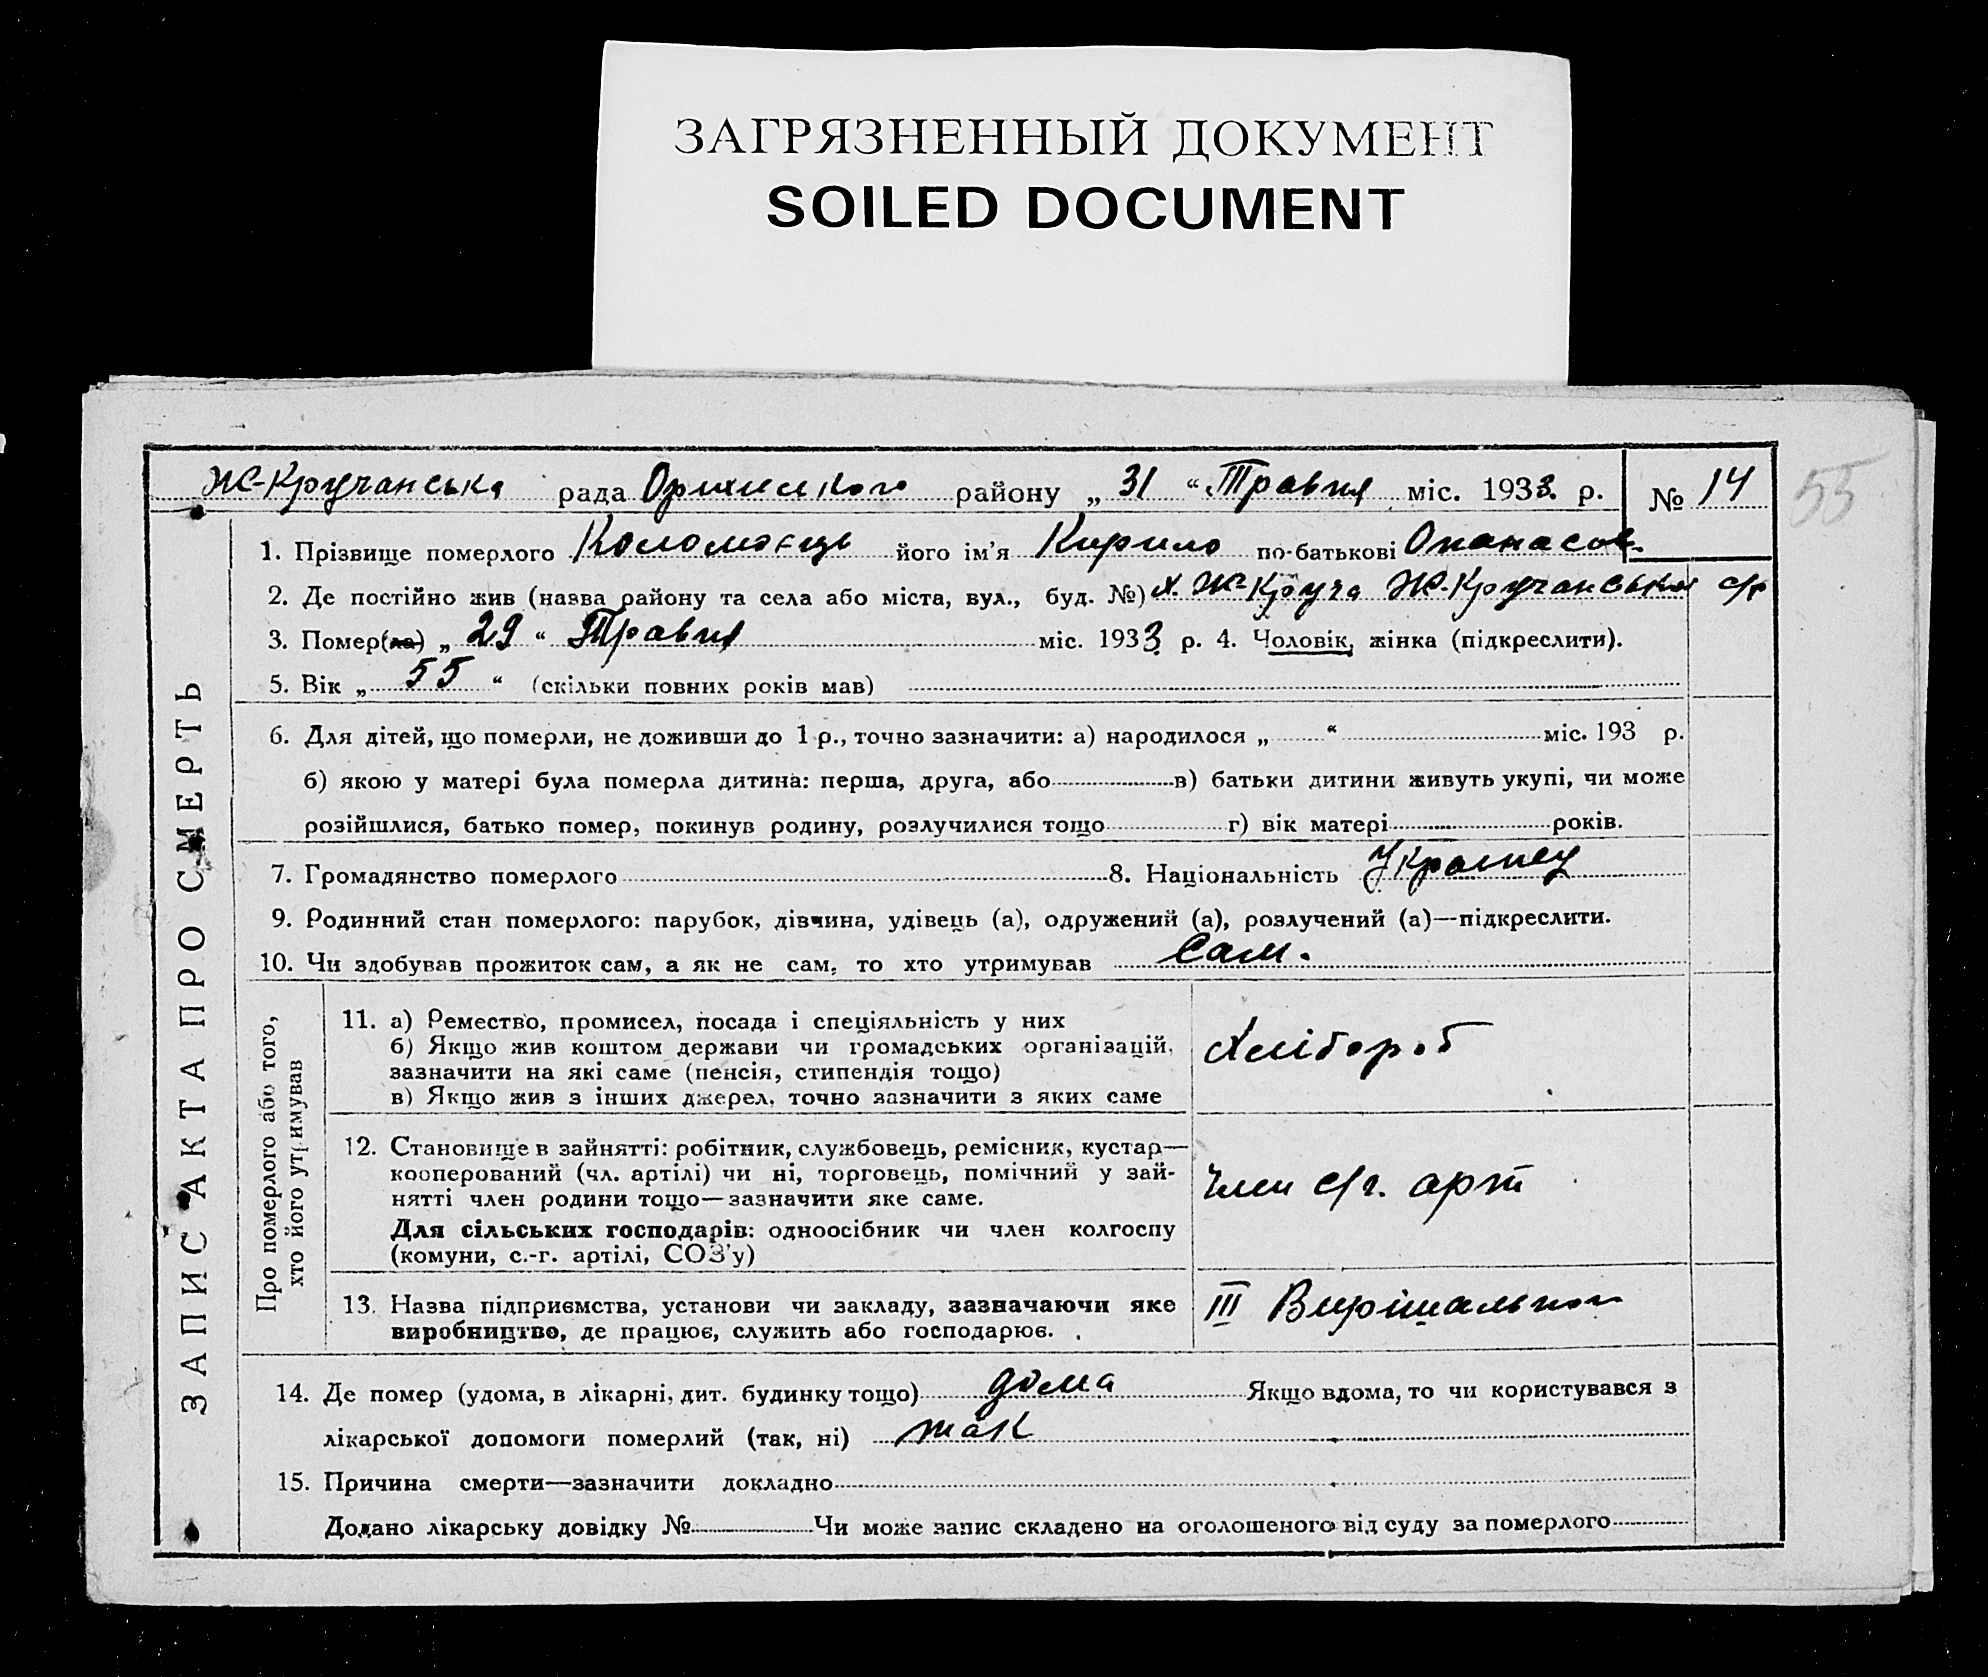 ЗАГРЯЗНЕННЫЙ ДОКУМЕНТ
SOILED DOCUMENT
55
Ж-Кручанська рада Оржицького району „ 31 “ Травня міс. 1933 р. № 14
1. Прізвище померлого Коломоєць його ім’я Кирило по-батькові Опанасов.
2. Де постійно жив (назва району та села або міста, вул., буд. №) х. Ж-Круча Ж-Кручанська с/р
3. Помер(ла) „ 29 “ Травня міс. 1933 р. 4. Чоловік, жінка (підкреслити).
5. Вік „ 55 “ (скільки повних років мав)
6. Для дітей, що померли, не доживши до 1 р., точно зазначити: а) народилося „ “ міс. 193 р.
б) якою у матері була померла дитина: перша, друга, або в) батьки дитини живуть укупі, чи може
розійшлися, батько помер, покинув родину, розлучилися тощо г) вік матері років.
7. Громадянство померлого 8. Національність Українец
9. Родинний стан померлого: парубок, дівчина, удівець (а), одружений (а), розлучений (а)—підкреслити.
10. Чи здобував прожиток сам, а як не сам, то хто утримував Сам.
11. а) Ремество, промисел, посада і спеціяльність у них
б) Якщо жив коштом держави чи громадських організацій,
зазначити на які саме (пенсія, стипендія тощо)
в) Якщо жив з інших джерел, точно зазначити з яких саме
Хлібороб
12. Становище в зайнятті: робітник, службовець, ремісник, кустар—
кооперований (чл. артілі) чи ні, торговець, помічний у зай-
нятті член родини тощо—зазначити яке саме.
Для сільських господарів: одноосібник чи член колгоспу
(комуни, с.-г. артілі, СОЗ’у)
Член с/г. арт
13. Назва підприємства, установи чи закладу, зазначаючи яке
виробництво, де працює, служить або господарює.
III Вирішальний
14. Де помер (удома, в лікарні, дит. будинку тощо) дома Якщо вдома, то чи користувався з
лікарської допомоги померлий (так, ні) так
15. Причина смерти—зазначити докладно
Додано лікарську довідку № Чи може запис складено на оголошеного від суду за померлого
ЗАПИС АКТА ПРО СМЕРТЬ
Про померлого або того,
хто його утримував